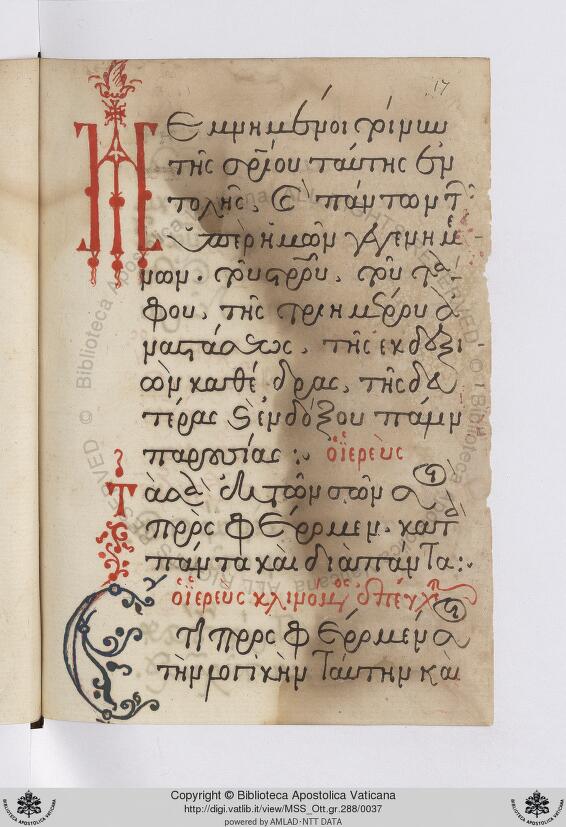 17
Μεμνημένοι τοίνυν
τῆς σωτηρίου ταύτης ἐν
τολῆς, καὶ πάντων τῶν
ὑπὲρ ἡμῶν γεγενημέ
νων· τοῦ σταυροῦ, τοῦ τά
φου, τῆς τριημέρου ἀ
ναστάσεως, τῆς ἐκ δεξι
ῶν καθέδρας, τῆς δευ
τέρας καὶ ἐνδόξου πάλιν
παρουσίας: ὁ ἱερεὺς
Τὰ σὰ ἐκ τῶν σῶν σοὶ
προσφέρομεν· κατὰ
πάντα καὶ διὰ πάντα:
ὁ ἱερεὺς κλινόμενος ἐπεύχεται
Ἔτι προσφέρομέν σοι
τὴν λογικὴν ταύτην καὶ
Copyright © Biblioteca Apostolica Vaticana
http://digi.vatlib.it/view/MSS_Ott.gr.288/0037
powered by AMLAD-NTT DATA